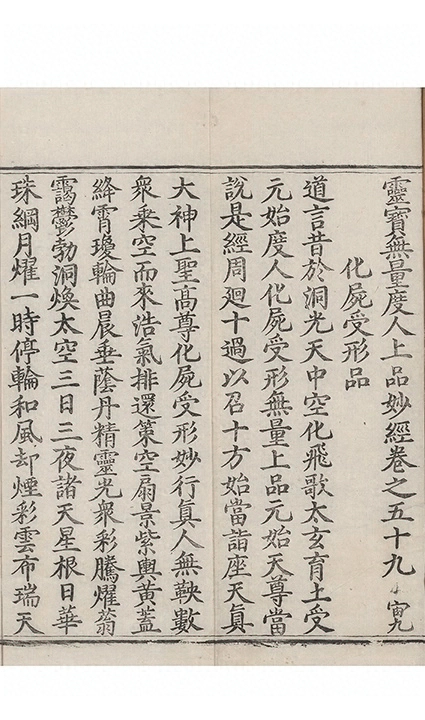 靈寶無量度人上品妙經卷之五十九 宙九
化屍受形品
道言昔於洞光天中空化飛歌太玄育上受
元始度人化屍受形無量上品元始天尊當
說是經周廻十過以召十方始當詣座天真
大神上聖高尊化屍受形妙行真人無鞅數
衆乘空而來浩氣排還策空扇景紫輿黃蓋
絳霄瓊輪曲晨垂蔭丹精靈光衆彩騰耀蓊
靄鬱勃洞煥太空三日三夜諸天星根日華
珠綱月耀一時停輪和風却煙彩雲布瑞天